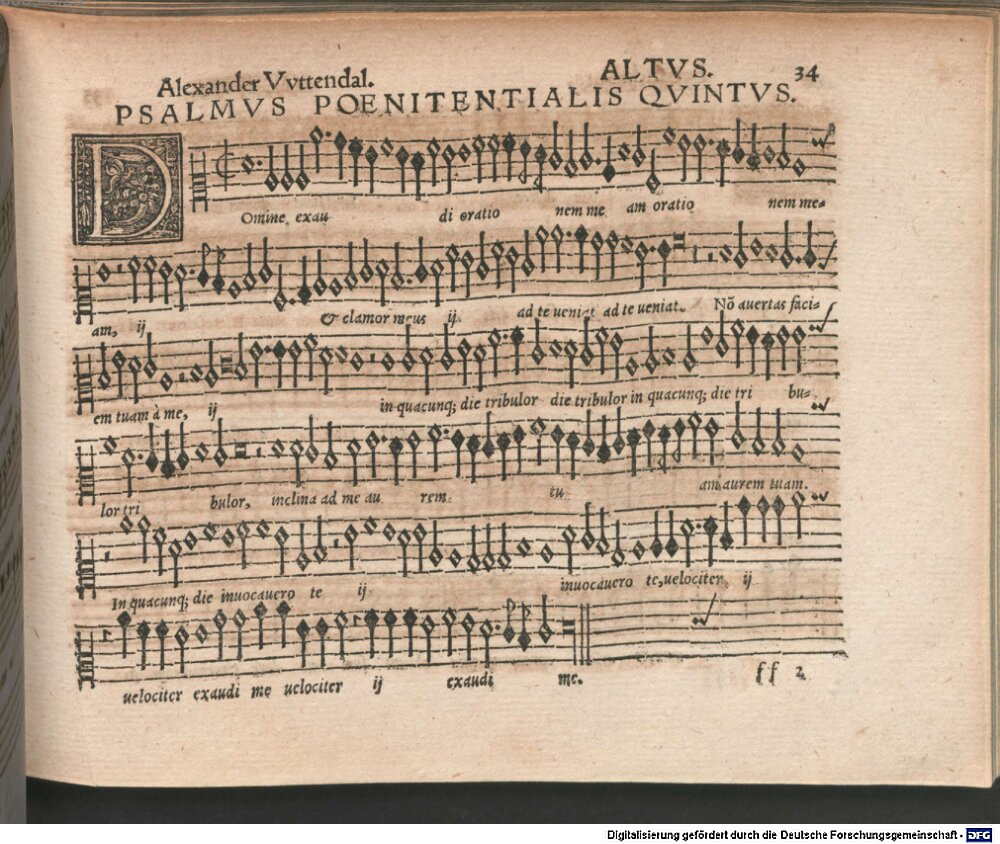 Alexander Vvttendal. ALTVS. 34
PSALMVS POENITENTIALIS QVINTVS.
DOmine exau di oratio nem me am oratio nem me-
am, ij & clamor meus ij. ad te ueniat ad te ueniat. Nõ auertas faci-
em tuam à me, ij in quacunq; die tribulor die tribulor in quacunq; die tri bu-
lor tri bulor, inclina ad me au rem. tu am aurem tuam.
In quacunq; die inuocauero te ij. inuocauero te, uelociter, ij
uelociter exaudi me uelociter ij exaudi me.
ff 2
Digitalisierung gefördert durch die Deutsche Forschungsgemeinschaft - DFG